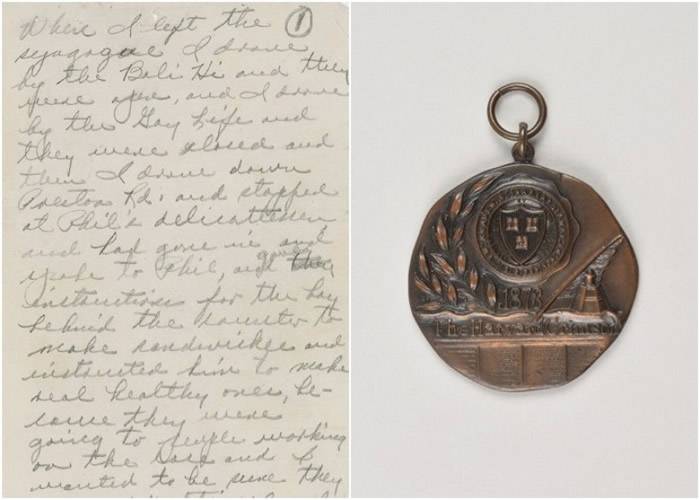 Where I left the
①
synagogue I drove
by the Bali Hi and they
were open, and I drove
by the Gay Life and
they were closed and
then I drove down
Preston Rd. and stopped
at Phil's delicattesen
and had gone in and
spoke to Phil, and gave
instructions for the boy
behind the counter to
make sandwiches and
instructed him to make
real healthy ones, be-
cause they were
going to people working
on the case and I
wanted to be sure they
1873
The Harvard Crimson